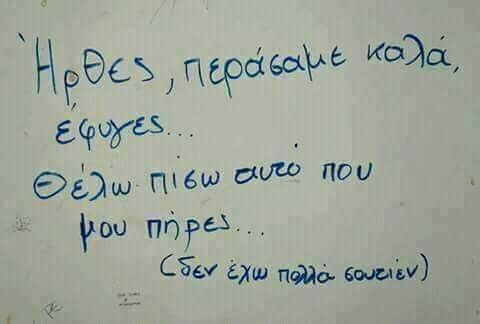 Ήρθες, περάσαμε καλά,
έφυγες...
Θέλω πίσω αυτό που
μου πήρες...
(δεν έχω πολλά σουτιέν)